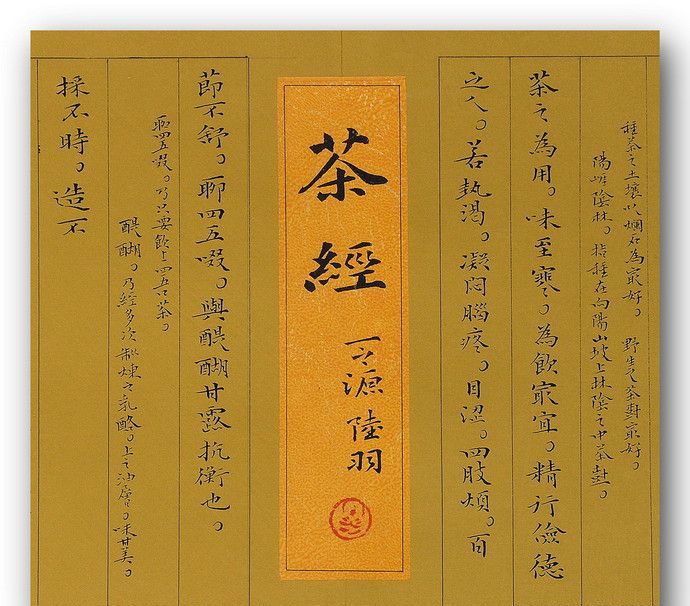 種茶之土壤以爛石為最好。野生之茶對最好。
陽崖陰林。指種在向陽山坡上林陰之中茶對。
茶之為用。味至寒。為飲最宜。精行儉德
之人。若熱渴。凝悶腦疼。目澀。四肢煩。百
茶經
一之源 陸羽
節不舒。聊四五啜。與醍醐甘露抗衡也。
聊四五啜。乃只要飲上四五口茶。
醍醐。乃經多次製煉之乳酪。上之油層。味甘美。
採不時。造不